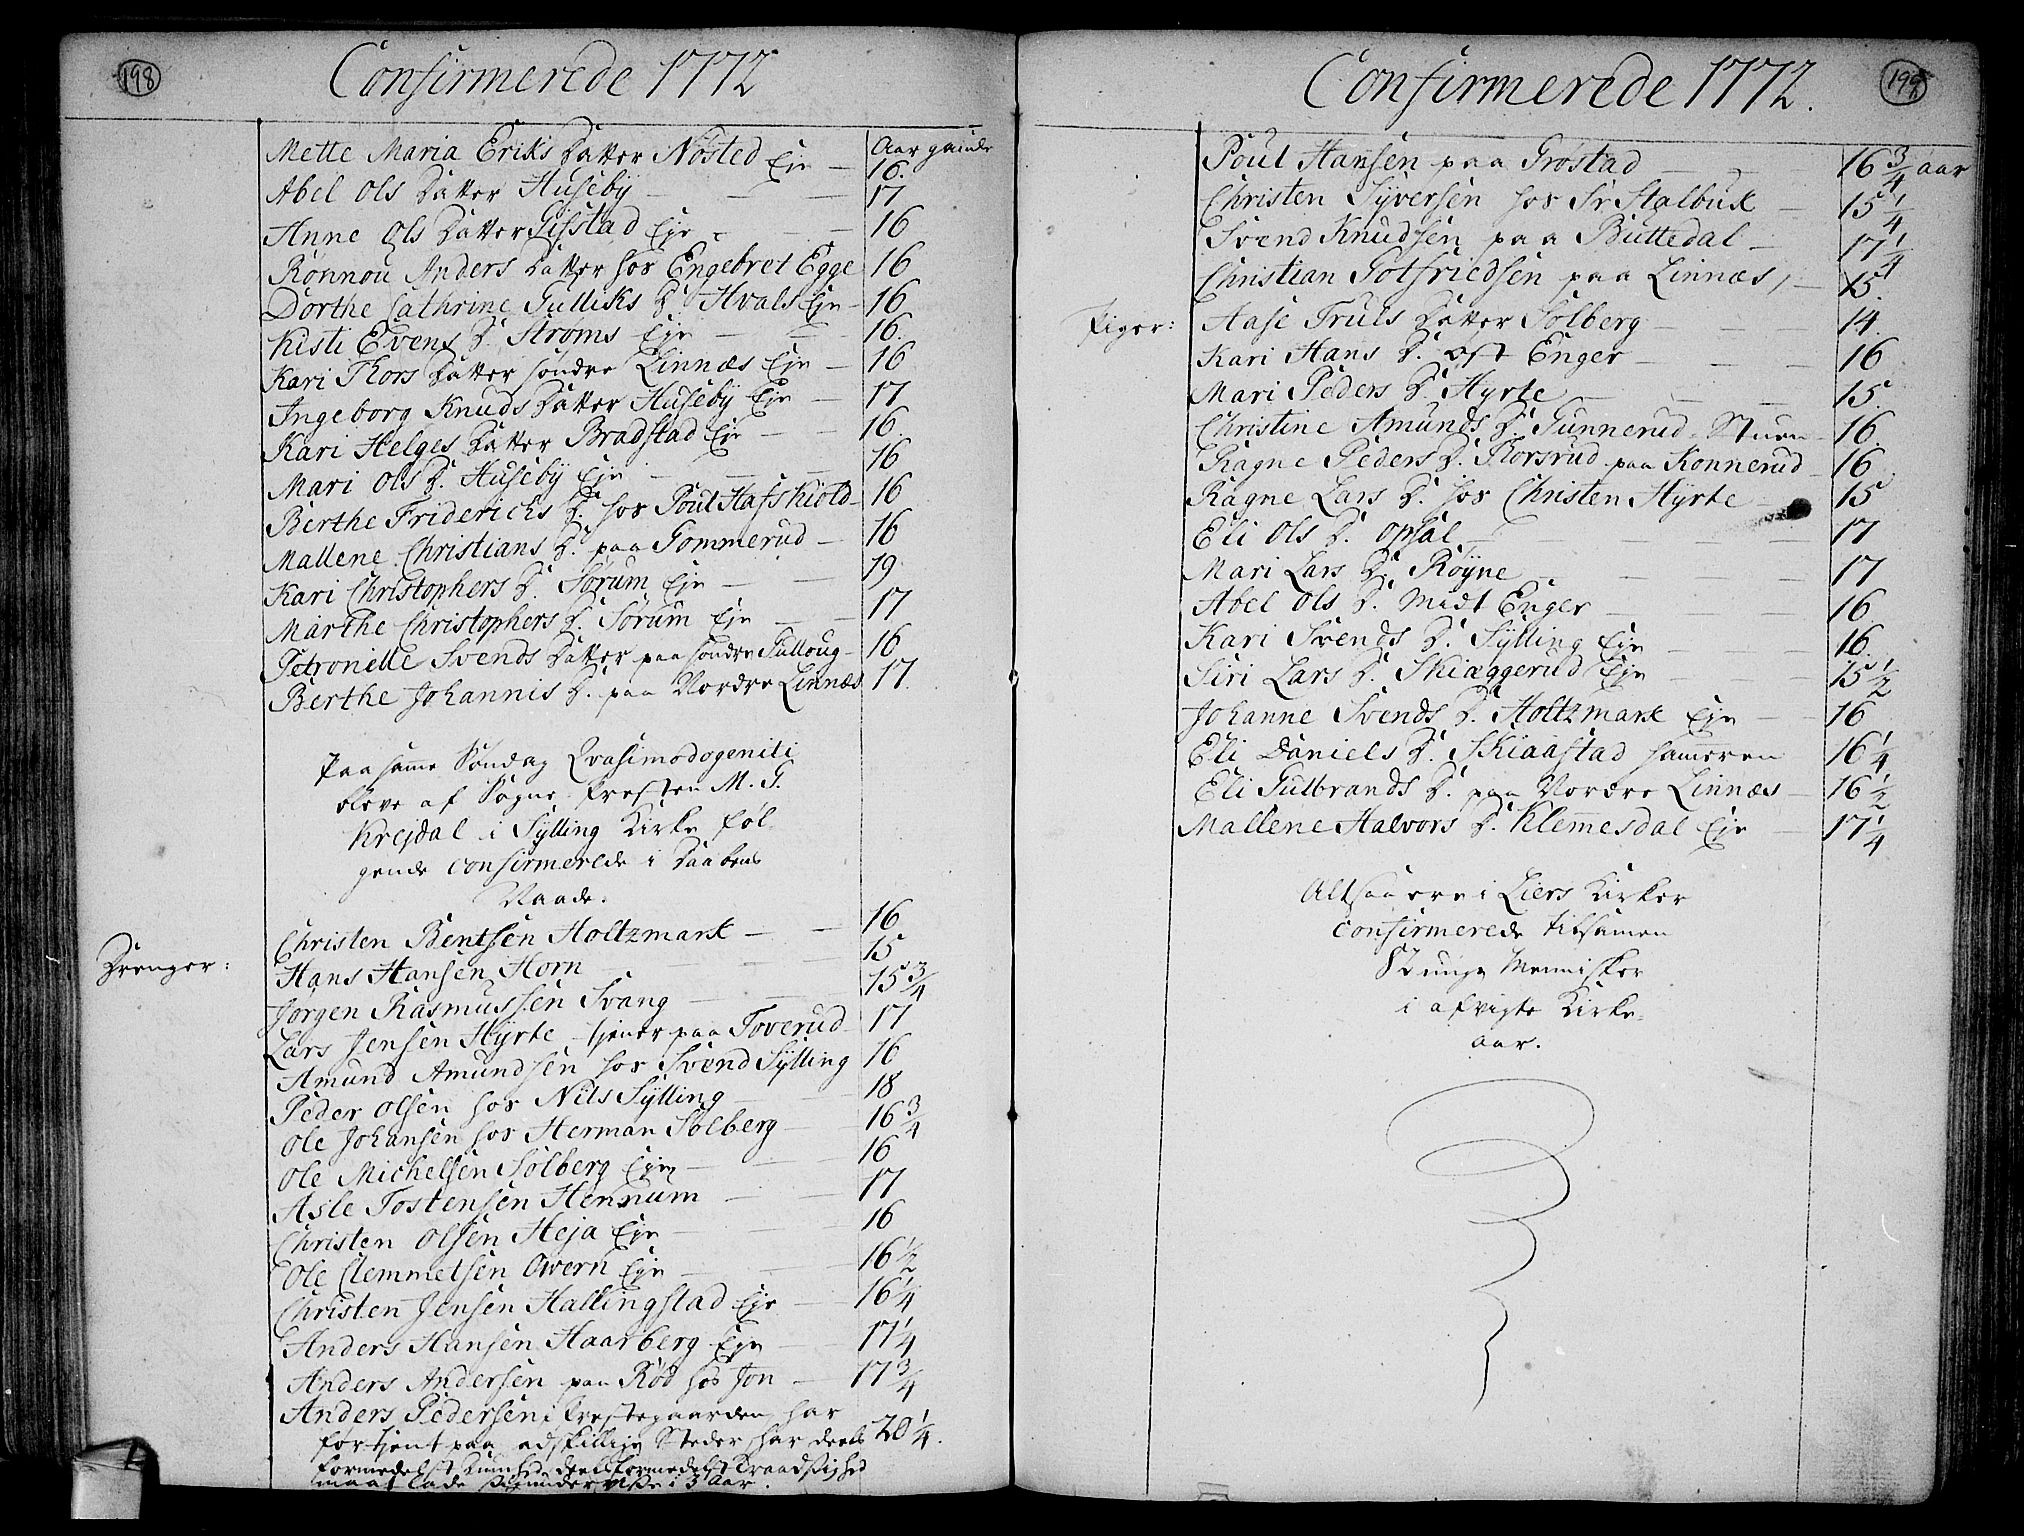 198
Confirmerede 1772
Aar gamle
Mette Maria Eriks Datter Nøsted Eje — 16.
Abel Ols Datter Huseby — 17
Anne Ols Datter Gifstad Eje — 16
Rønnou Anders Datter hos Engebret Egge 16
Dorthe Cathrine Gulliks D. Hvals Eje — 16
Kisti Evens D. Strøms Eje — 16.
Kari Thors Datter søndre Linnæs Eje — 16
Ingeborg Knuds Datter Huseby Eje — 17
Kari Helges Datter Bradstad Eje — 16.
Mari Ols D. Huseby Eje — 16
Berthe Friderichs D. hos Poul Hafskiold — 16
Mallene Christians D. paa Gommerud — 16
Kari Christophers D. Sørum Eje — 19
Marthe Christophers D. Sørum Eje — 17
Petronille Svends Datter paa søndre Tulloug — 16
Berthe Johannis D. paa Nordre Linnæs 17.
Paa samme Søndag Qvasimodogeniti
bleve af Sogne-Præsten M. G.
Krejdal i Sylling Kirke føl-
gende confirmerede i Daabens
Naade.
Drenger:
Christen Bentsen Holtzmark — 16
Hans Hansen Horn — 15
Jørgen Rasmussen Svang — 15 3/4
Lars Jensen Hyrte tjener paa Toverud — 17
Amund Amundsen hos Svend Sylling 16
Peder Olsen hos Nils Sylling — 18
Ole Johansen hos Herman Solberg — 16 3/4
Ole Michelsen Solberg Eje — 16
Asle Tostensen Hennum — 17
Christen Olsen Heja Eje — 16
Ole Clemmetsen Owern Eje — 16 1/2
Christen Jensen Hallingstad Eje — 16 1/4
Anders Hansen Haarberg Eje — 17 1/4
Anders Andersen paa Rød hos Jon — 17 3/4
Anders Pedersen i Præstegaarden, har
før tjent paa adskillige Steder, har deels 20 1/4.
formedelst Dumhed, deels formedelst Traadsighed
maat lade sig underviise i 3 Aar.
199
Confirmerede 1772.
Poul Hansen paa Grøstad — 16 3/4 aar
Christen Syversen hos Sr Stalbuk — 15 1/4
Svend Knudsen paa Buttedal — 17 1/4
Christian Gotfriedsen paa Linnæs, — 15.
Piger:
Aase Truls Datter Solberg — 14.
Kari Hans D. øst Enger — 16
Mari Peders D. Hyrte — 15.
Christine Amunds D. Gunnerud-Stuen — 16.
Ragne Peders D. Thorsrud paa Konnerud — 16
Ragne Lars D. hos Christen Hyrte — 15
Eli Ols D. Opsal — 17
Mari Lars D. Røyne — 17
Abel Ols D. Midt Enger — 16
Kari Svends D. Sylling Eje — 16.
Siri Lars D. Skiæggerud Eje — 15 1/2
Johanne Svends D. Holtzmark Eje — 16
Eli Daniels D. Skiaastad hammeren 16 1/4
Eli Gulbrands D. paa Nordre Linnæs — 16 1/2
Mallene Halvors D. Klemmesdal Eje — 17 1/4
Altsaa ere i Liers Kirker
confirmerede tilsamen
82 unge Mennisker
i afvigte Kirke-
aar.